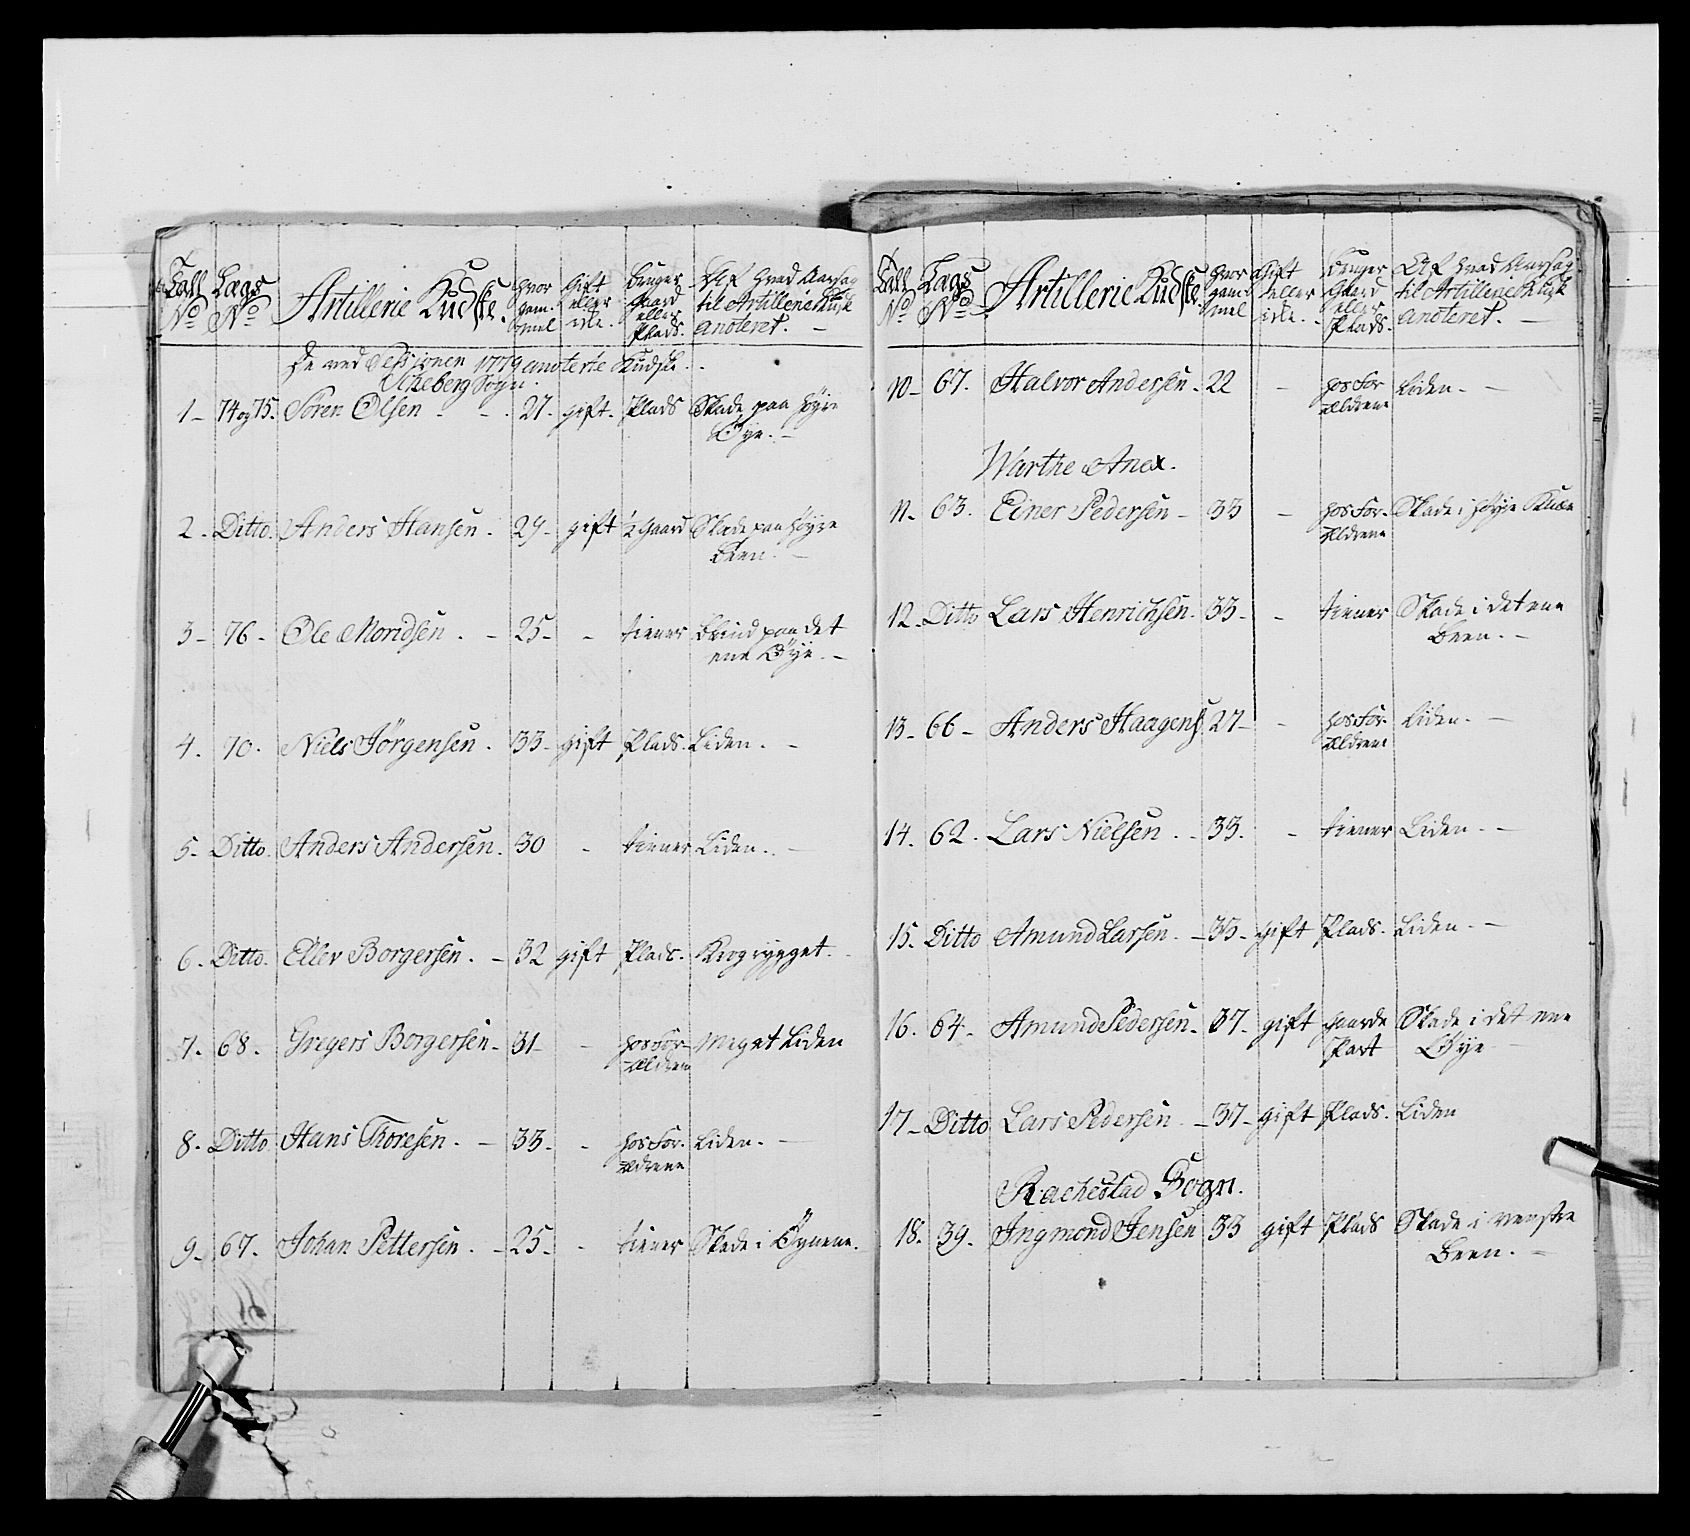 Tall No Lægs No Artillerie Kudske. Hvor gam̅mel Gift eller icke. Bruger Gaard eller Plads. Af hvad Aarsag til Artillerie Kusk anoteret. -
De ved Sessionen 1779 anoterte Kudske.
Scheberg Sogn.
1 - 74 og 75. Sören Olsen - 27. gift. Plads Skade paa høyre
Øye. -
2. Ditto. Anders Hansen. 29. gift ½ Gaard Skade paa høyre
Been. -
3 - 76 - Ole Moridsen. - 25 - - tiener blind paa det
ene Øye. -
4. 70. Niels Jörgensen. 33. gift Plads. Liden. -
5. Ditto. Anders Andersen. 30 - tiener Liden. -
6. Ditto. Ellev Borgersen. - 32 gift Plads. Krogrygget.
7. 68. Gregers Borgersen - 31 - - hos For-
ældrene Meget Liden
8. Ditto. Hans Thoresen. - 33. - hos For-
ældrene Liden. -
9. 67. Johan Pettersen. - 25 - - tiener Skade i Øynene.
Tall No Lægs No Artillerie Kudske. Hvor gam̅mel Gift eller icke. Bruger Gaard eller Plads. Af hvad Aarsag til Artillerie Kusk anoteret. -
10 - 67. Halvor Andersen. 22 - hos For-
ældrene Liden. -
Warthe Anex.
11. 63. Einer Pedersen - 33 - hos For-
ældrene Skade i høyre Knæe
12. Ditto Lars Henrichsen. 33 - - tiener Skade i det ene
Been. -
13 - 66 - Anders Haagens 27 - - hos For-
ældrene Liden. -
14. 62. Lars Nielsen. - 33. - tiener Liden. -
15. Ditto Amund Larsen. - 33 - gift Plads. Liden. -
16. 64. Amund Pedersen. 37 - gift gaarde
Part Skade i det ene
Øye
17 - Ditto Lars Pedersen. - 37 - gift Plads. Liden
Rachestad Sogn.
18. 39. Ingmond Jensen 33 gift Plads Skade i venstre
Been. -